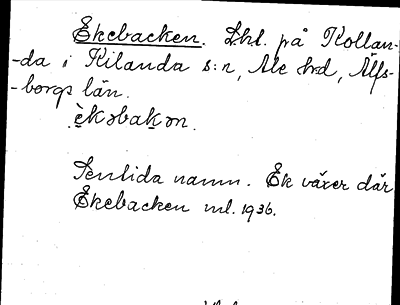 Ekebacken. Lhl. på Kollan-
-da i Kilanda s:n, Ale hd, Älfs-
-borgs län.
èkəbakən.
Sentida namn. Ek växer där
Ekebacken ml. 1936.